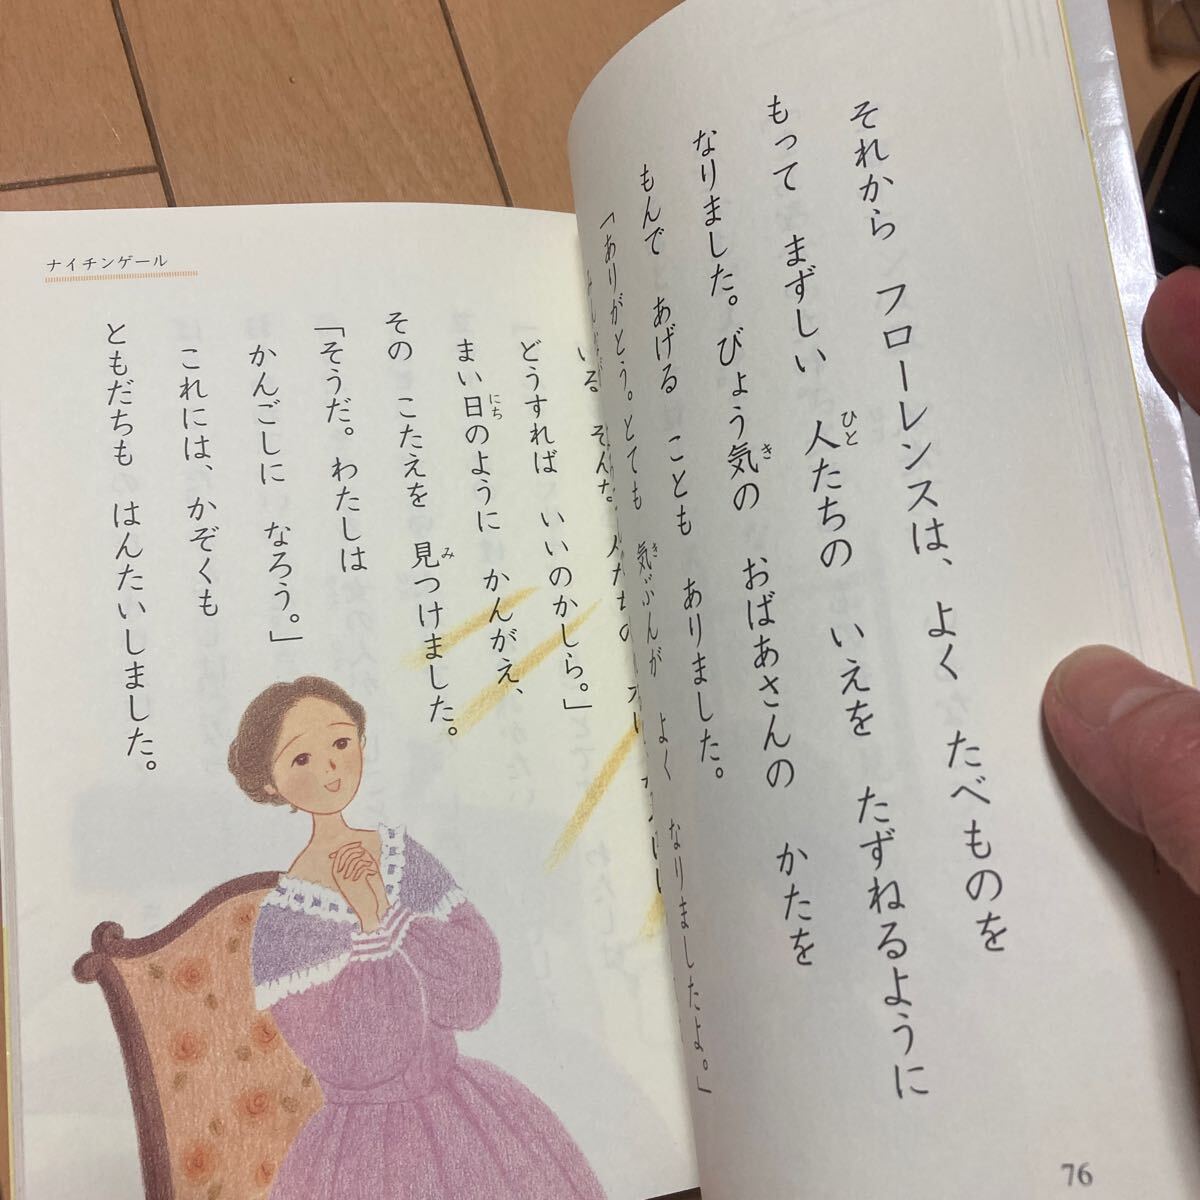 それから フローレンスは、よく たべものを
もって まずしい 人たちの いえを たずねるように
なりました。びょう気の おばあさんの かたを
もんで あげる ことも ありました。
「ありがとう。とても 気ぶんが よく なりましたよ。」
76
ナイチンゲール
いる そんな
どうすれば いいのかしら。」
まい日のように かんがえ、
その こたえを 見つけました。
「そうだ。わたしは
かんごしに なろう。」
これには、かぞくも
ともだちも はんたいしました。